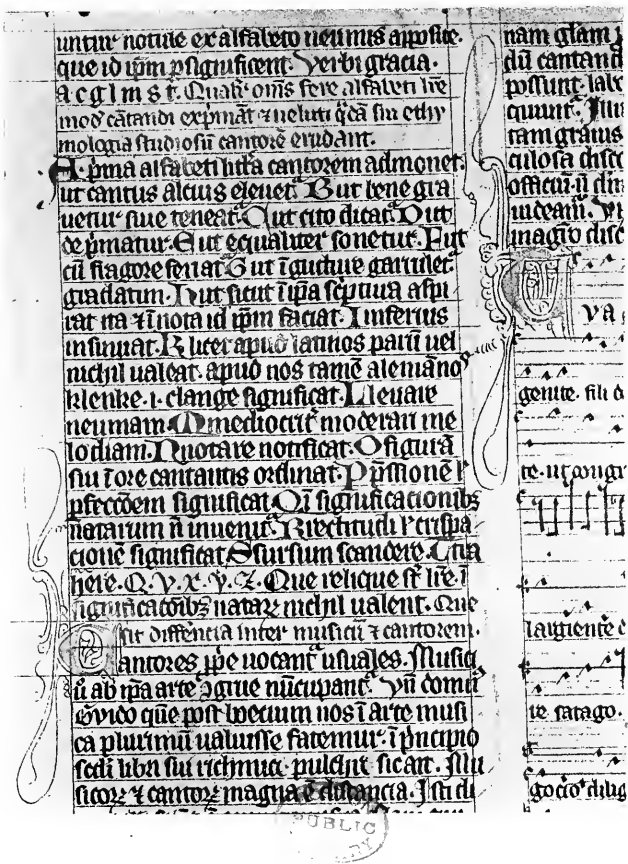 untur notule ex alfabeto neumis apposite.
que id ip̄m p̄significent. Verbi gracia.
a c g l m s t. Qualit̓ om̄s fere alfabeti lr̄e
mod̓ cātandi exp̓māt ⁊ ueluti q̄da sui ethy
mologia studiosū cantorē erudant.
A. p̓ma alfabeti litta cantorem admonet.
ut cantus alcius eleuet̓. B ut bene gra
uetur siue teneat̓. C ut cito dicat̓. D ut
de p̓matur. E ut equaliter sonetur. F ut
cū fragore feriat̓. G ut ī guture garrulet̓
gradatim. H ut sicut ī ip̄a sc̓ptura aspi
rat ita ⁊ ī nota id ip̄m faciat. I inferius
insinuat. K licet apud latinos parū uel
nichil ualeat. apud nos tamē alemāno
klenke. i. clange significat. L leuare
neumam. M mediocrit̓ moderari me
lodiam. N notare notificat. O figurā
sui ī ore cantantis ordinat. P p̄ssionē ł
p̄fecc̄oem significat. Q ī significationib̓
natarum n̄ inuenit̓. R rectitudī ł crispa
cionē significat. S sursum scandere. T t̓a
here. Q. v. x. y. z. Que relique st̄ lr̄e. ī
significacōib̓ natar̄ nichil ualent. Que
sit diffēncia inter musicū ⁊ cantorem.
Cantores p̄p̄e uocant̓ usuales. Musici
ū ab ip̄a arte ꝯgrue nūcupant̓. Vn̄ domn̓
Gvido quē post boecium nos ī arte musi
ca plurimū ualuisse fatemur. ī p̓ncipio
sc̄di libri sui richmici pulchre sic ait. Mu
sicor̄ ⁊ cantor̄ magna ē distancia. Isti di
nam glam
dū cantand
possunt. labe
quirit̓.
tam grauis
culosa disc
officiū
uideam̓.
magno disc
Q
va
genite. fili d
te. ut congr
largiente
re satago.
dilig
PUBLIC